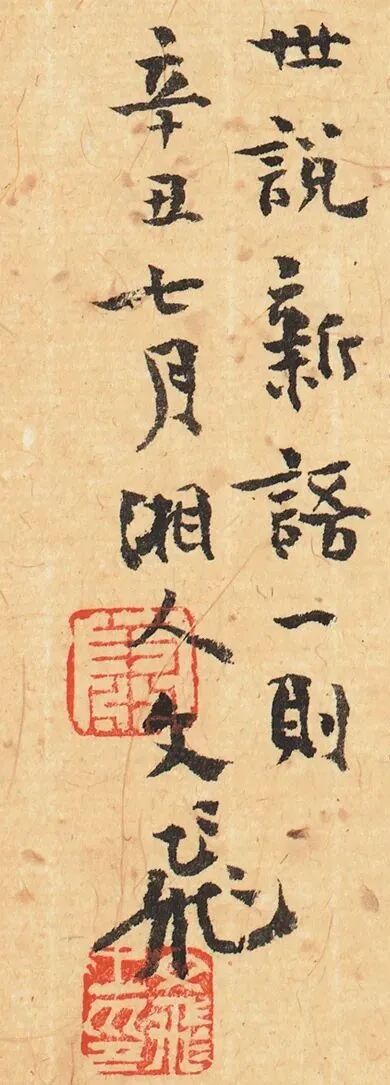 世說新語一則
辛丑七月湘人文飛